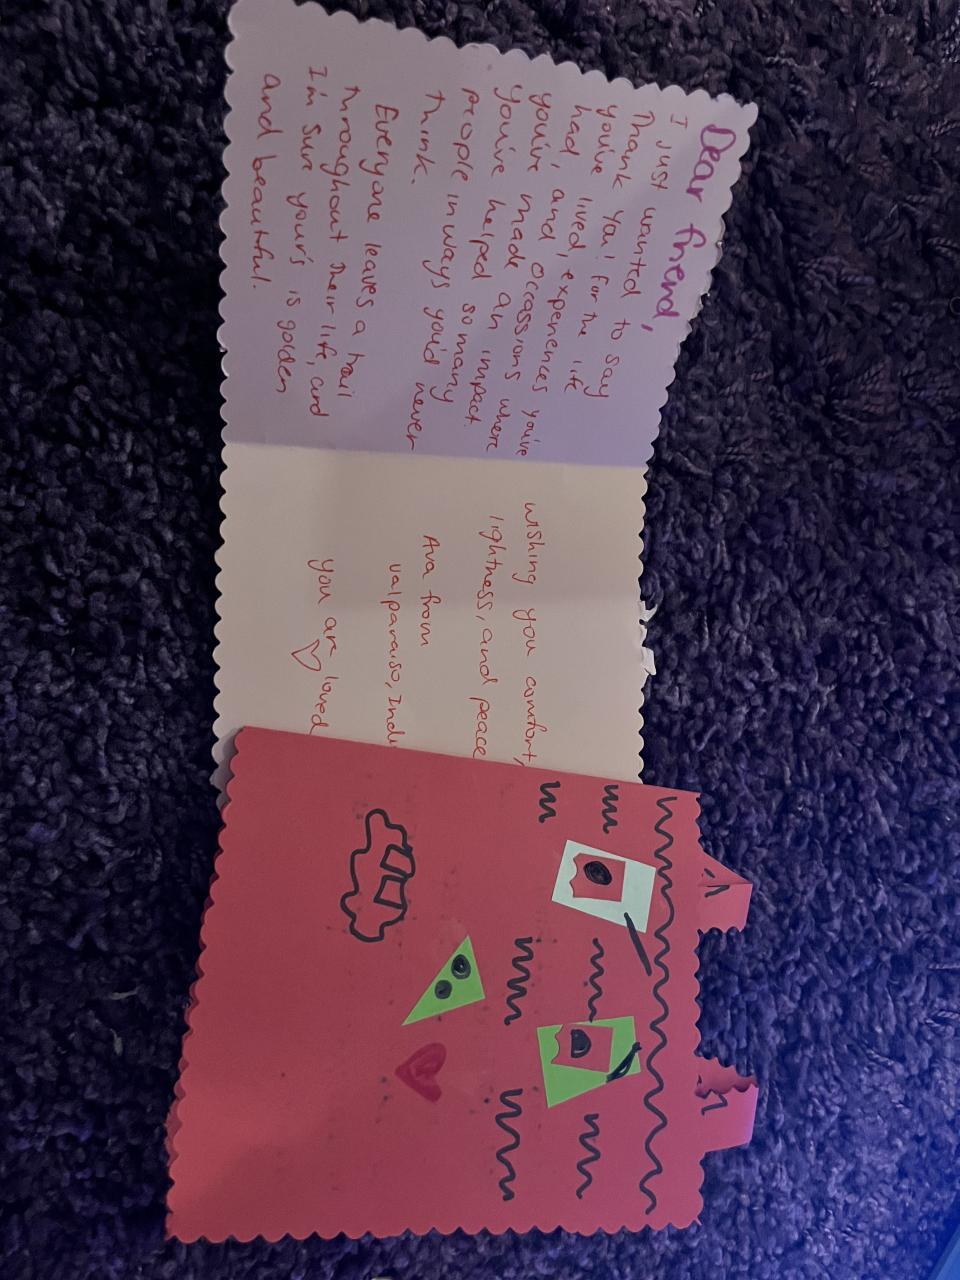 Dear friend,
I just wanted to say
Thank you! for the life
you've lived, experiences you've
had and occassions where
you've made an impact.
You've helped so many
people in ways you'd never
think.
Everyone leaves a trail
throughout their life, and
I'm sure your's is golden
and beautiful.
wishing you comfort,
lightness, and peace
Ava from
valparaiso, Indi
you are loved